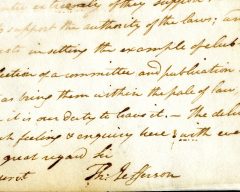 extremely if they support
support the authority of the laws; and
in setting the example of club
election of a committee and publication
as bring them within the pale of law,
it is our duty to leave it. — The deli
feeling & enquiry here & with eve
great regard Sir
Th: Jefferson